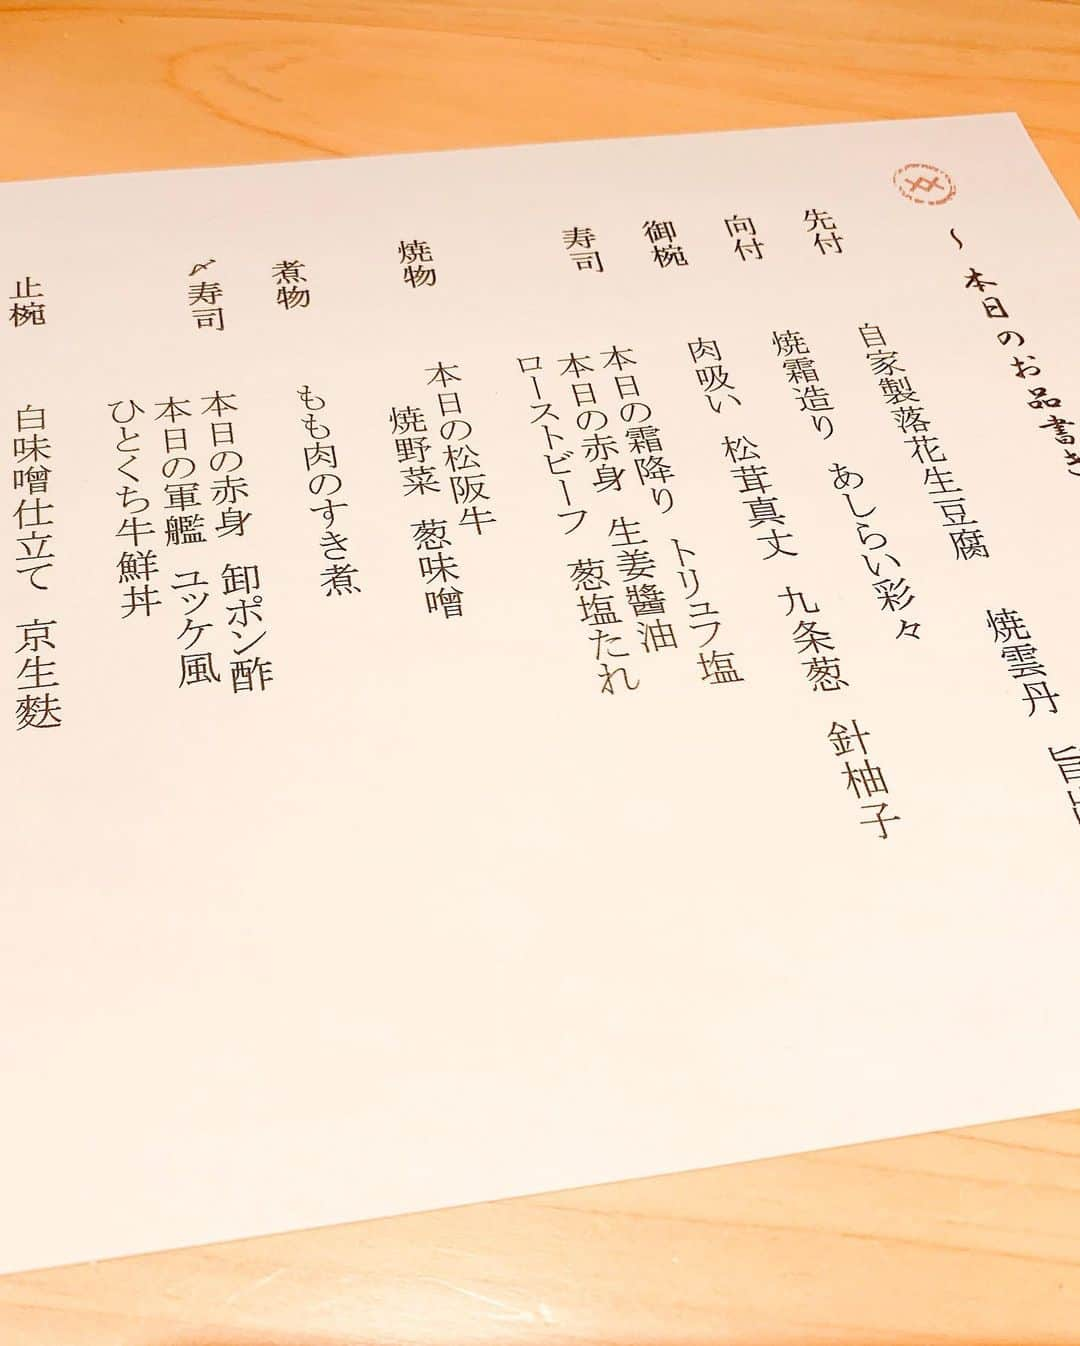 〜本日のお品書き
先付　自家製落花生豆腐　焼雲丹　旨
向付　焼霜造り　あしらい彩々
御椀　肉吸い　松茸真丈　九条葱　針柚子
寿司　本日の霜降り　トリュフ塩
本日の赤身　生姜醬油
ローストビーフ　葱塩たれ
焼物　本日の松阪牛
焼野菜　葱味噌
煮物　もも肉のすき煮
〆寿司　本日の赤身　卸ポン酢
本日の軍艦　ユッケ風
ひとくち牛鮮丼
止椀　白味噌仕立て　京生麩